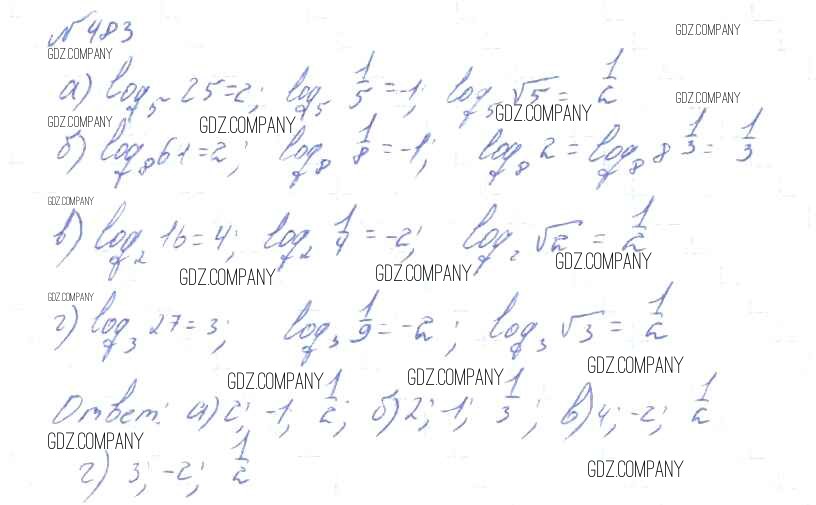 №483
GDZ.COMPANY GDZ.COMPANY
а) log₅ 25=2; log₅ 1/5 =-1; log₅ √5 = 1/2
GDZ.COMPANY GDZ.COMPANY GDZ.COMPANY GDZ.COMPANY
б) log₈ 61=2; log₈ 1/8 =-1; log₈ 2 = log₈ 8^(1/3) = 1/3
GDZ.COMPANY
в) log₂ 16=4; log₂ 1/4 = -2; log₂ √2 = 1/2
GDZ.COMPANY GDZ.COMPANY GDZ.COMPANY
GDZ.COMPANY
г) log₃ 27=3; log₃ 1/9 = -2; log₃ √3 = 1/2
GDZ.COMPANY GDZ.COMPANY GDZ.COMPANY
Ответ: а) 2; -1; 1/2; б) 2; -1; 1/3; в) 4; -2; 1/2
GDZ.COMPANY
г) 3; -2; 1/2
GDZ.COMPANY